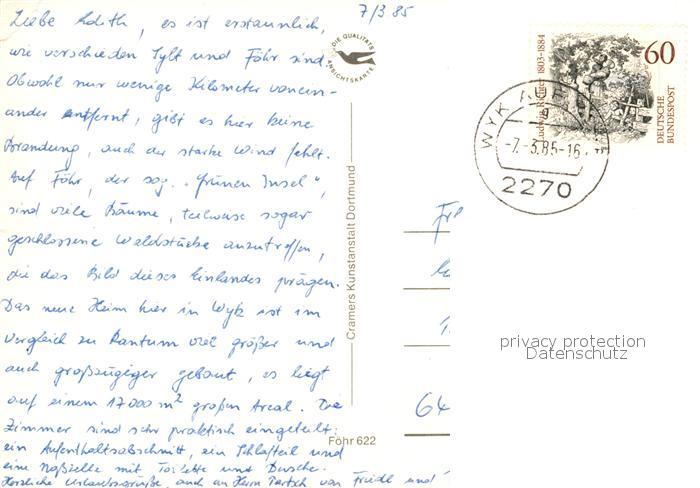 7/3.85
Liebe Edith, es ist erstaunlich,
wie verschieden Sylt und Föhr sind.
Obwohl nur wenige Kilometer vonein-
ander entfernt, gibt es hier keine
Brandung, auch der starke Wind fehlt.
Auf Föhr, der sog. "grünen Insel",
sind viele Bäume, teilweise sogar
geschlossene Waldstücke anzutreffen,
die das Bild dieses Eilandes prägen.
Das neue Heim hier in Wyk ist im
Vergleich zu Rantum viel größer und
auch großzügiger gebaut, es liegt
auf einem 17000 m² großen Areal. Die
Zimmer sind sehr praktisch eingeteilt:
ein Aufenthaltsabschnitt, ein Schlafteil und
eine Naßzelle mit Toilette und Dusche.
Herzliche Urlaubsgrüße, auch an Herrn von Friedl und
DIE QUALITÄTS
ANSICHTSKARTE
Cramers Kunstanstalt Dortmund
Föhr 622
Ludwig Richter 1803-1884
60
DEUTSCHE
BUNDESPOST
WYK AUF
-7.-3.85-16
2270
64
privacy protection
Datenschutz